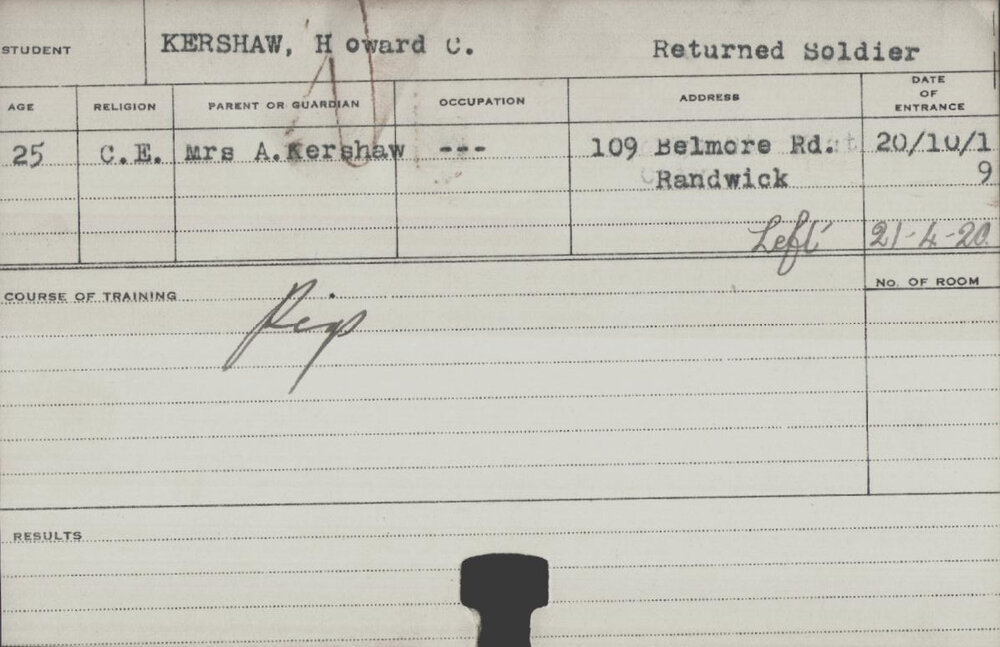 STUDENT KERSHAW, H oward C. Returned Soldier
AGE RELIGION PARENT OR GUARDIAN OCCUPATION ADDRESS DATE OF ENTRANCE
25 C.E. Mrs A.Kershaw --- 109 Belmore Rd. 20/10/1
Randwick 9
Left 21-4-20.
COURSE OF TRAINING No. OF ROOM
Pigs
RESULTS